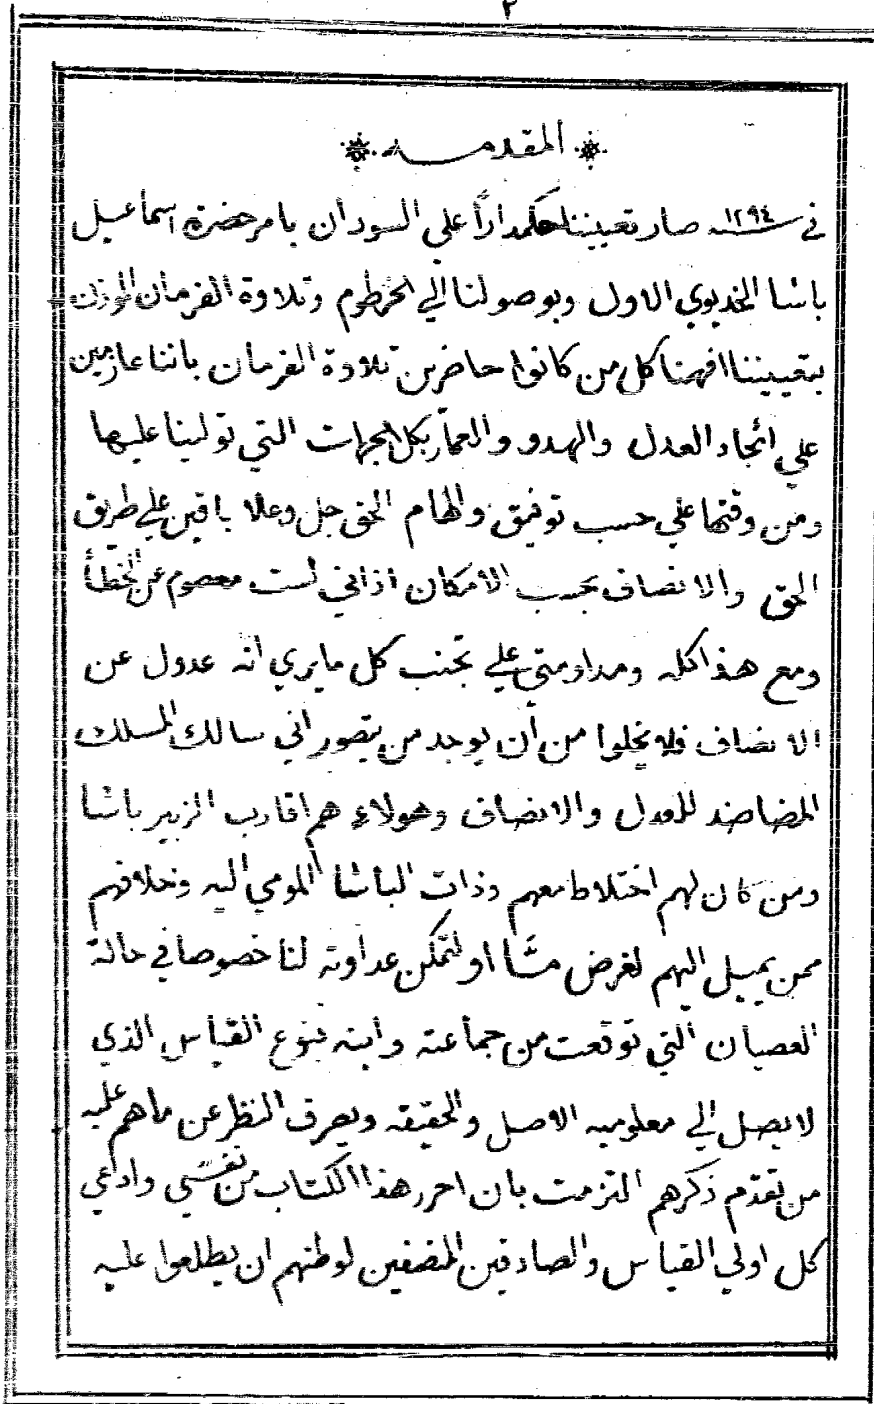 ٢
المقدمه
في سنة ١٢٩٤ صار تعييننا حكمداراً علي السودان بامر حضرة اسماعيل
باشا الخديوي الاول وبوصولنا الي الخرطوم وتلاوة الفرمان الموزن
بتعييننا افهمنا كل من كانوا حاضرين تلاوة الفرمان باننا عازمين
علي اتجاد العدل والهدو والعمار بكل الجهات التي تولينا عليها
ومن وقتها علي حسب توفيق والهام الحق جل وعلا باقين علي طريق
الحق والانصاف بحسب الامكان اذ اني لست معصوم عن الخطأ
ومع هذا كله ومداومتي علي تجنب كل مايري انه عدول عن
الانصاف فلا يخلوا من أن يوجد من يتصور اني سالك المسلك
المضاضد للعدل والانصاف وهولاء هم اقارب الزبير باشا
ومن كان لهم اختلاط معهم وذات الباشا المومي اليه وخلافهم
ممن يميل اليهم لغرض منَّا او لتمكن عداوته لنا خصوصا في حالة
العصيان التي توقعت من جماعته وابنه فبنوع القياس الذي
لايصل الي معلوميه الاصل والحقيقه ويصرف النظر عن ماهم عليه
من تقدم ذكرهم التزمت بان احرر هذا الكتاب من نفسي وادعي
كل اولي القياس والصادقين المنصفين لوطنهم ان يطلعوا عليه